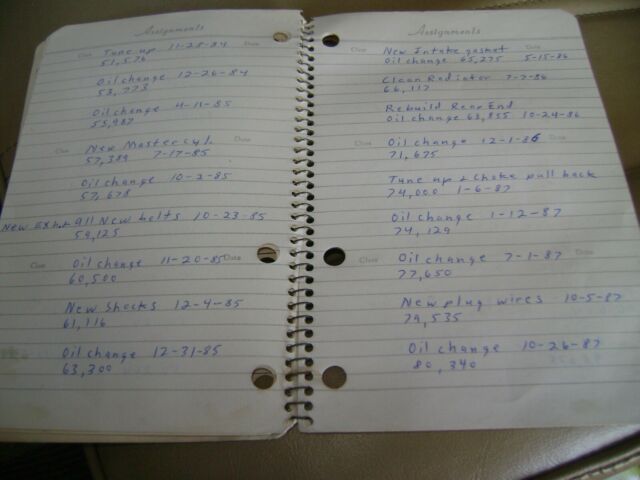 Assignments
Class Tune up 11-28-84 Date
51,576
Oil change 12-26-84
53,773
Oil change 4-11-85
55,987
Class New Master cyl. Date
57,389 7-17-85
Oil change 10-2-85
57,678
New Exh. All New bolts 10-23-85
59,125
Class Oil change 11-20-85 Date
60,500
New Shocks 12-4-85
61,116
Oil change 12-31-85
63,300
Assignments
Class New Intake gasket Date
Oil change 65,275 5-15-86
Clean Radiator 7-7-86
66,117
Rebuild Rear End
Oil change 68,855 10-24-86
Class Oil change 12-1-86 Date
71,675
Tune up + Choke pull back
74,000 1-6-87
Oil change 1-12-87
74,129
Class Oil change 7-1-87 Date
77,650
New plug wires 10-5-87
79,535
Oil change 10-26-87
80,340